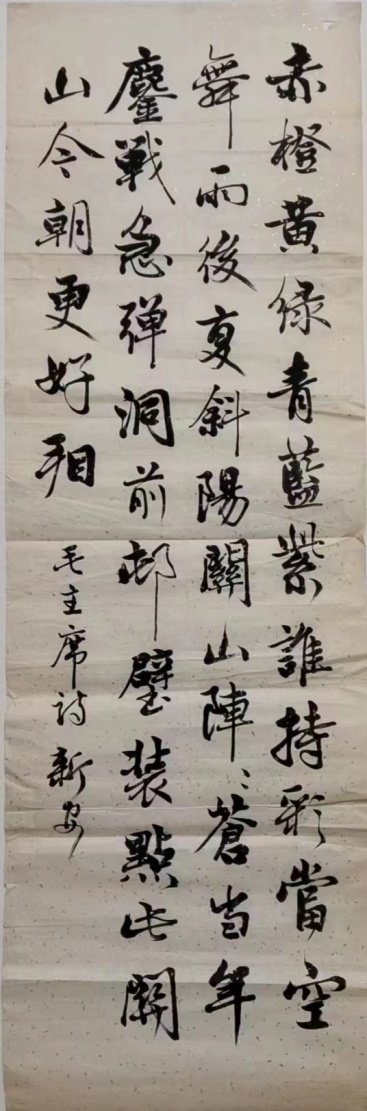 赤橙黄绿青藍紫誰持彩當空
舞雨後复斜陽關山陣〻蒼当年
鏖戦急弾洞前邨壁装點此關
山今朝更好看
毛主席詩 新安